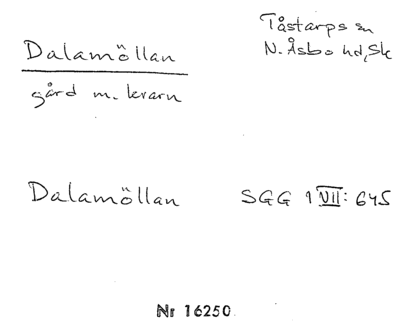 Dalamöllan
Tåstarps sn
N. Åsbo hd, Sk
gård m. kvarn
Dalamöllan
SGG 1 VII: 645
Nr 16250